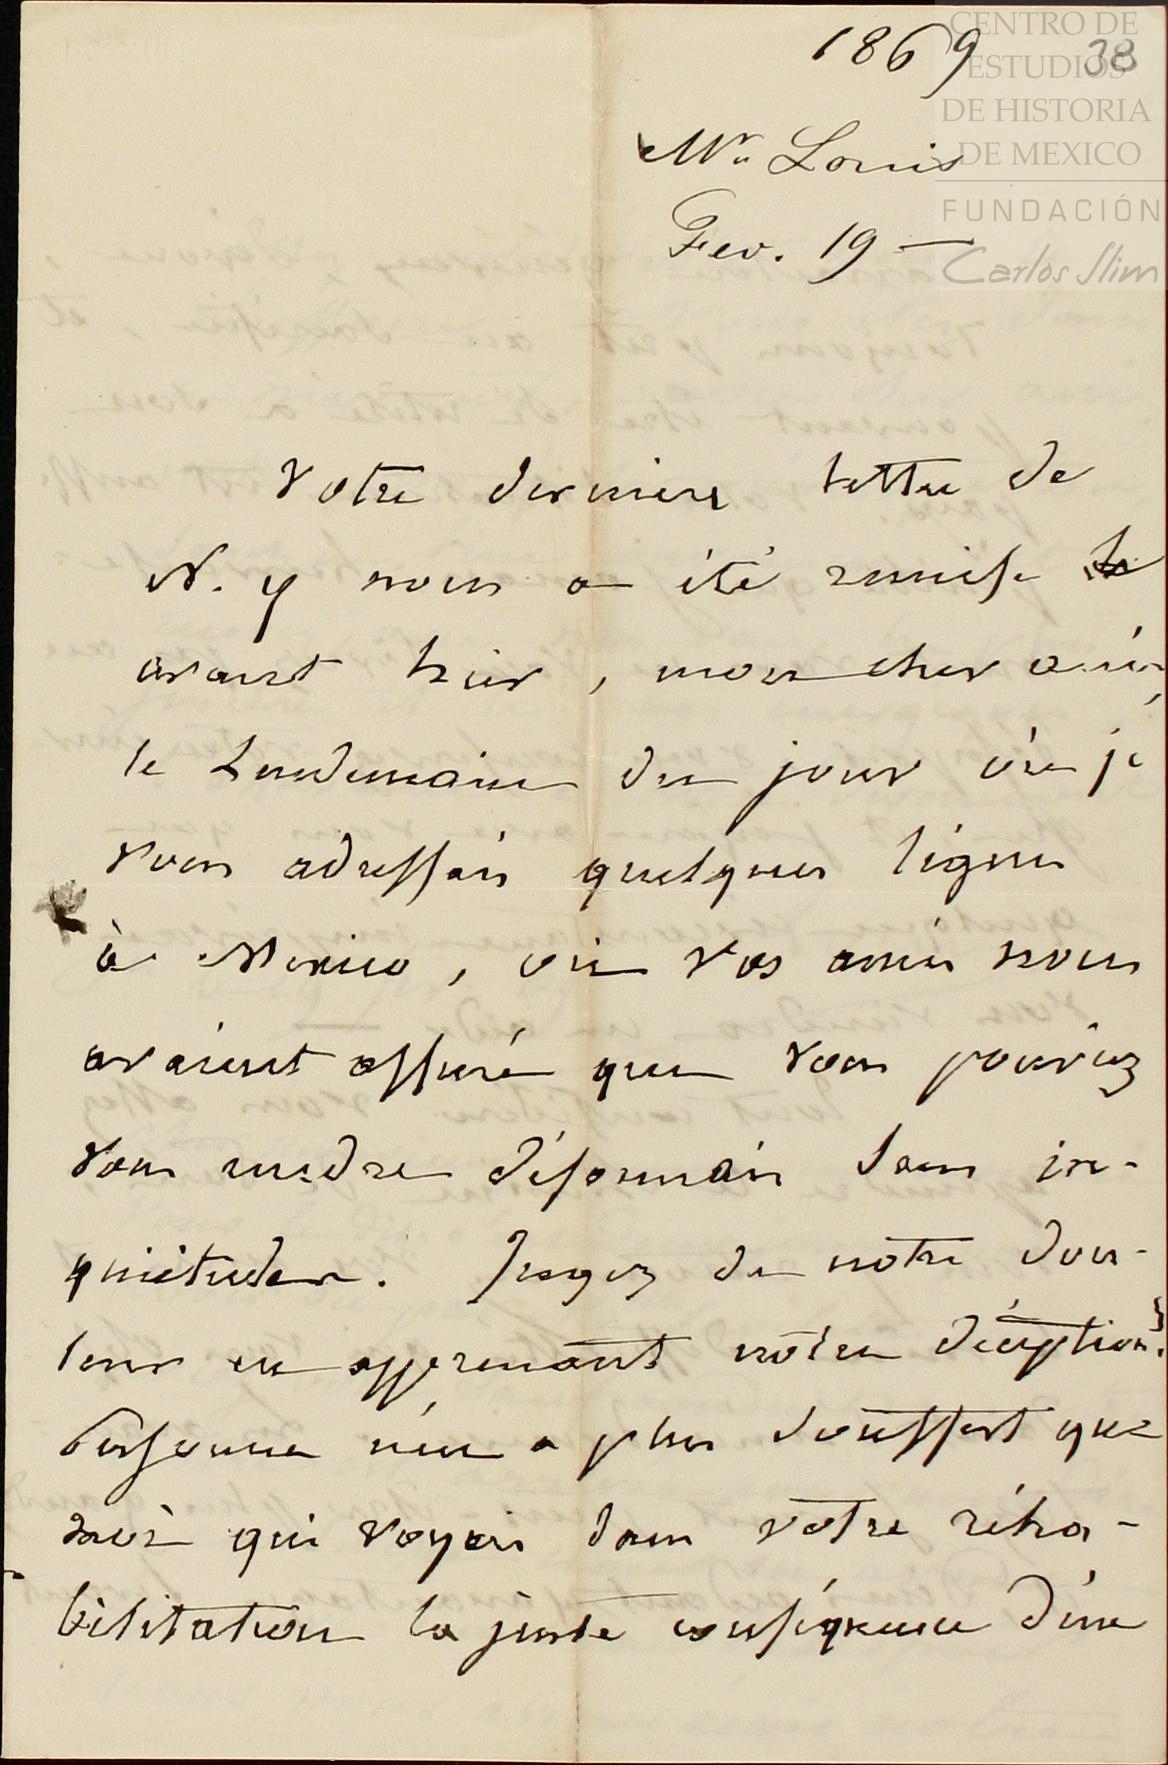 1869
38
CENTRO DE
ESTUDIOS
DE HISTORIA
DE MEXICO
FUNDACIÓN
Carlos Slim
Louis
Fev. 19 —
Votre derniere lettre de
N. y nous a été remise
avant hier, mon cher ami,
le lendemain du jour où je
vous adressais quelques lignes
à Mexico, où vos amis nous
avaient assuré que vous pouviez
vous rendre désormais sans in-
quiétudes. Jugez de notre dou-
leur en apprenant notre déception!
Personne n'en a plus souffert que
moi qui voyais dans votre réha-
bilitation la juste conséquence d'une